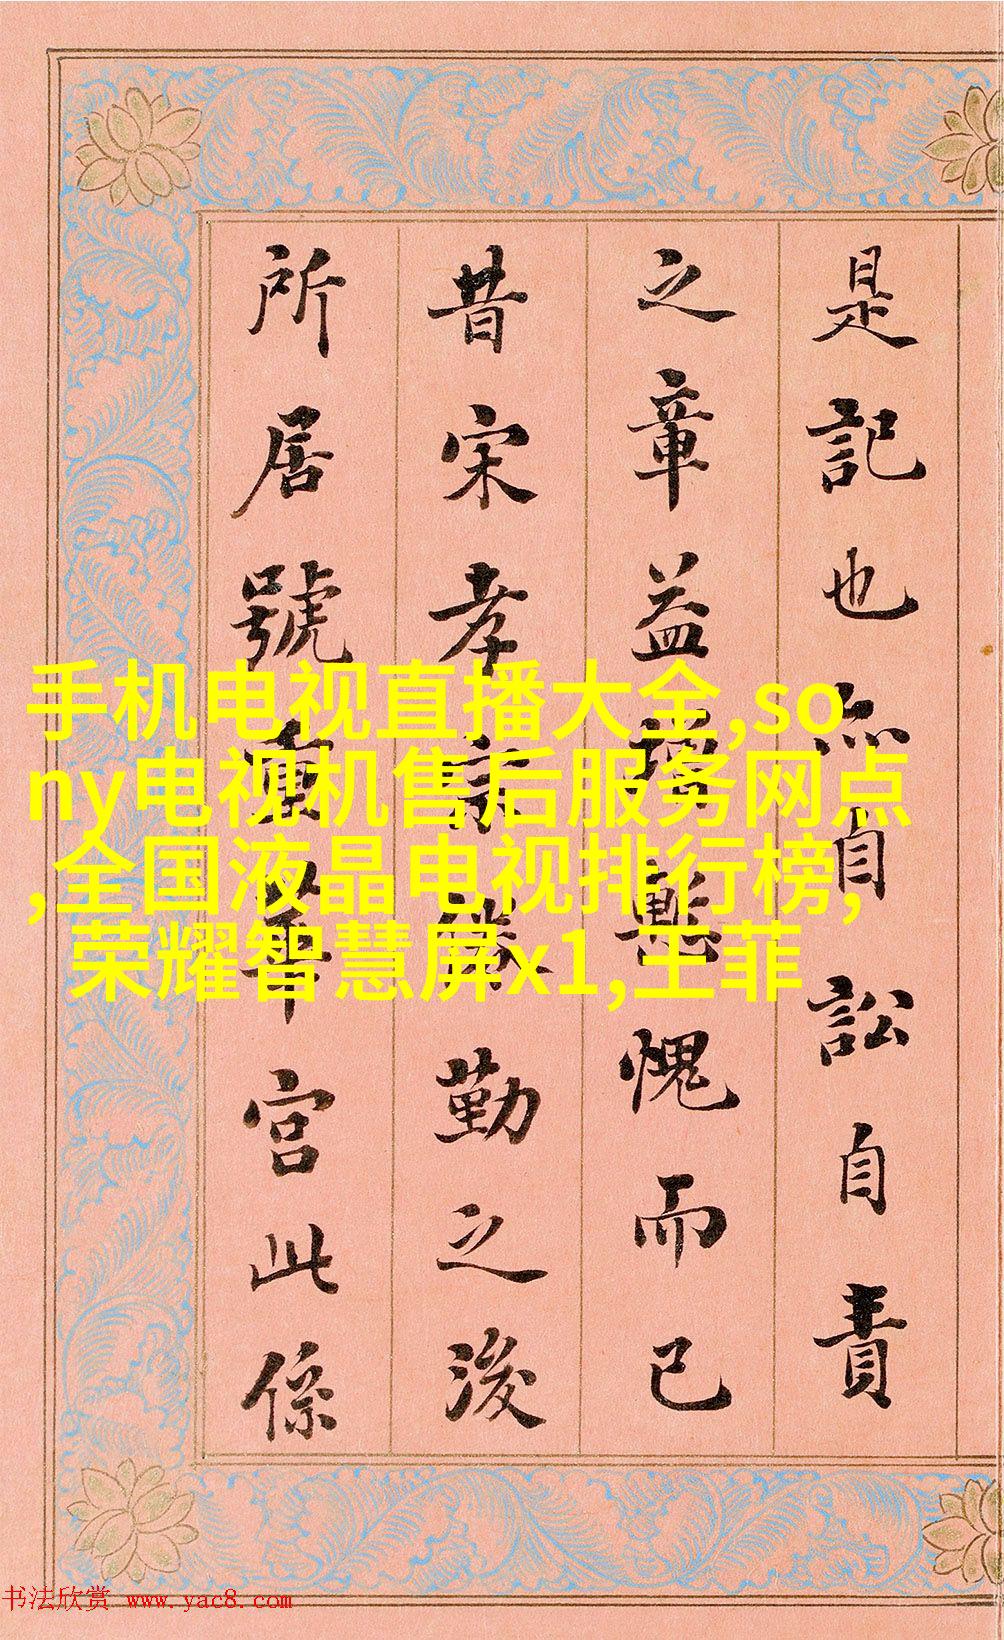 是記也亦自訟自責
之章益增慙愧而已
昔宋孝宗倦勤之後
所居號重華宮此係
手机电视直播大全,so
ny电视机售后服务网点
,全国液晶电视排行榜,
荣耀智慧屏x1,王菲
书法欣赏 www.yac8.com